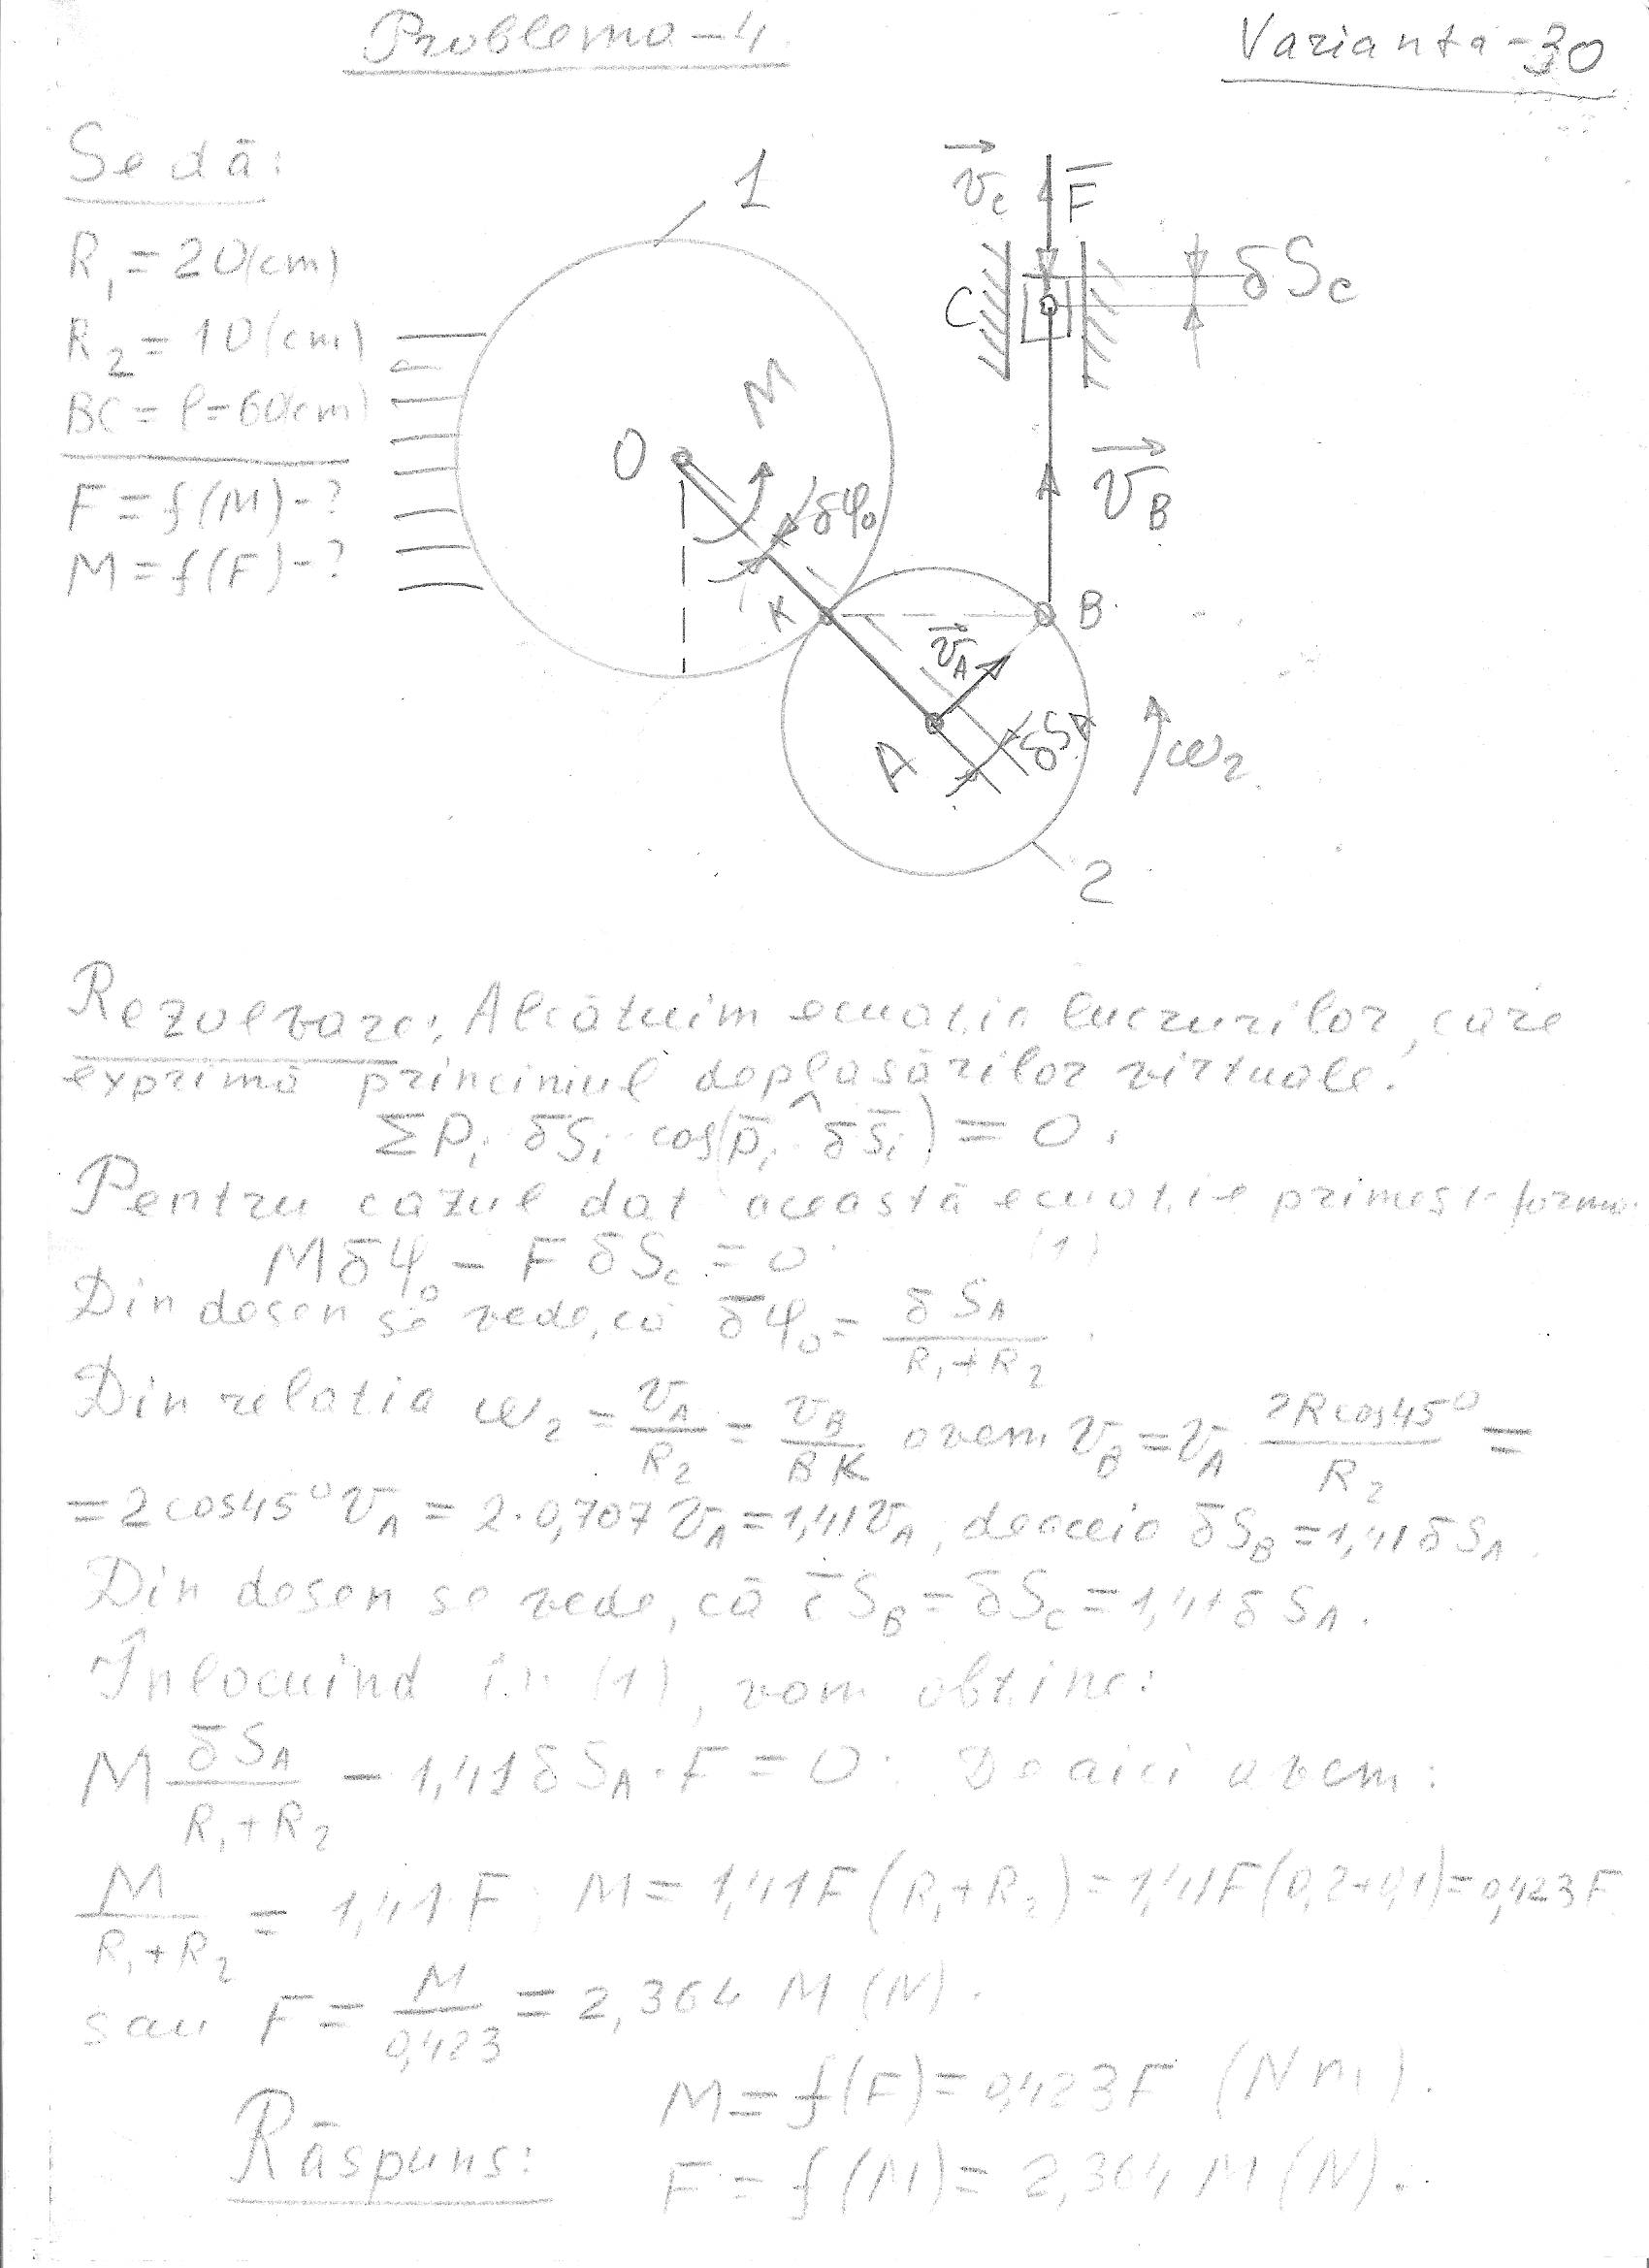 Problema-4.
Varianta-30
Se dă:
R₁=20(cm)
R₂=10(cm)
BC=l=60(cm)
F=f(M)-?
M=f(F)-?
1
v⃗c
F̄
C
δSc
M
O
δφ₀
v⃗B
K
B
v⃗A
δSA
A
ω₂
2
Rezolvare: Alcătuim ecuația lucrurilor, care
exprimă principiul deplasărilor virtuale.
ΣPi δSi cos(p̄i ^ δs̄i)=0.
Pentru cazul dat această ecuație primește forma:
Mδφ₀ - FδSc = 0 (1)
Din desen se vede, că δφ₀ = δSA / (R₁+R₂).
Din relația ω₂ = vA/R₂ = vB/BK avem vB = vA 2Rcos45°/R₂ =
=2cos45°vA = 2·0,707vA=1,41vA, deaceia δSB=1,41δSA.
Din desen se vede, că δSB=δSc=1,41δSA.
Înlocuind în (1), vom obține:
M δSA/(R₁+R₂) - 1,41δSA·F=0. De aici avem:
M/(R₁+R₂) = 1,41F; M=1,41F(R₁+R₂)=1,41F(0,2+0,1)=0,423F
sau F = M/0,423 = 2,364 M (N).
M=f(F)=0,423F (Nm).
Răspuns:
F=f(M)=2,364 M(N).